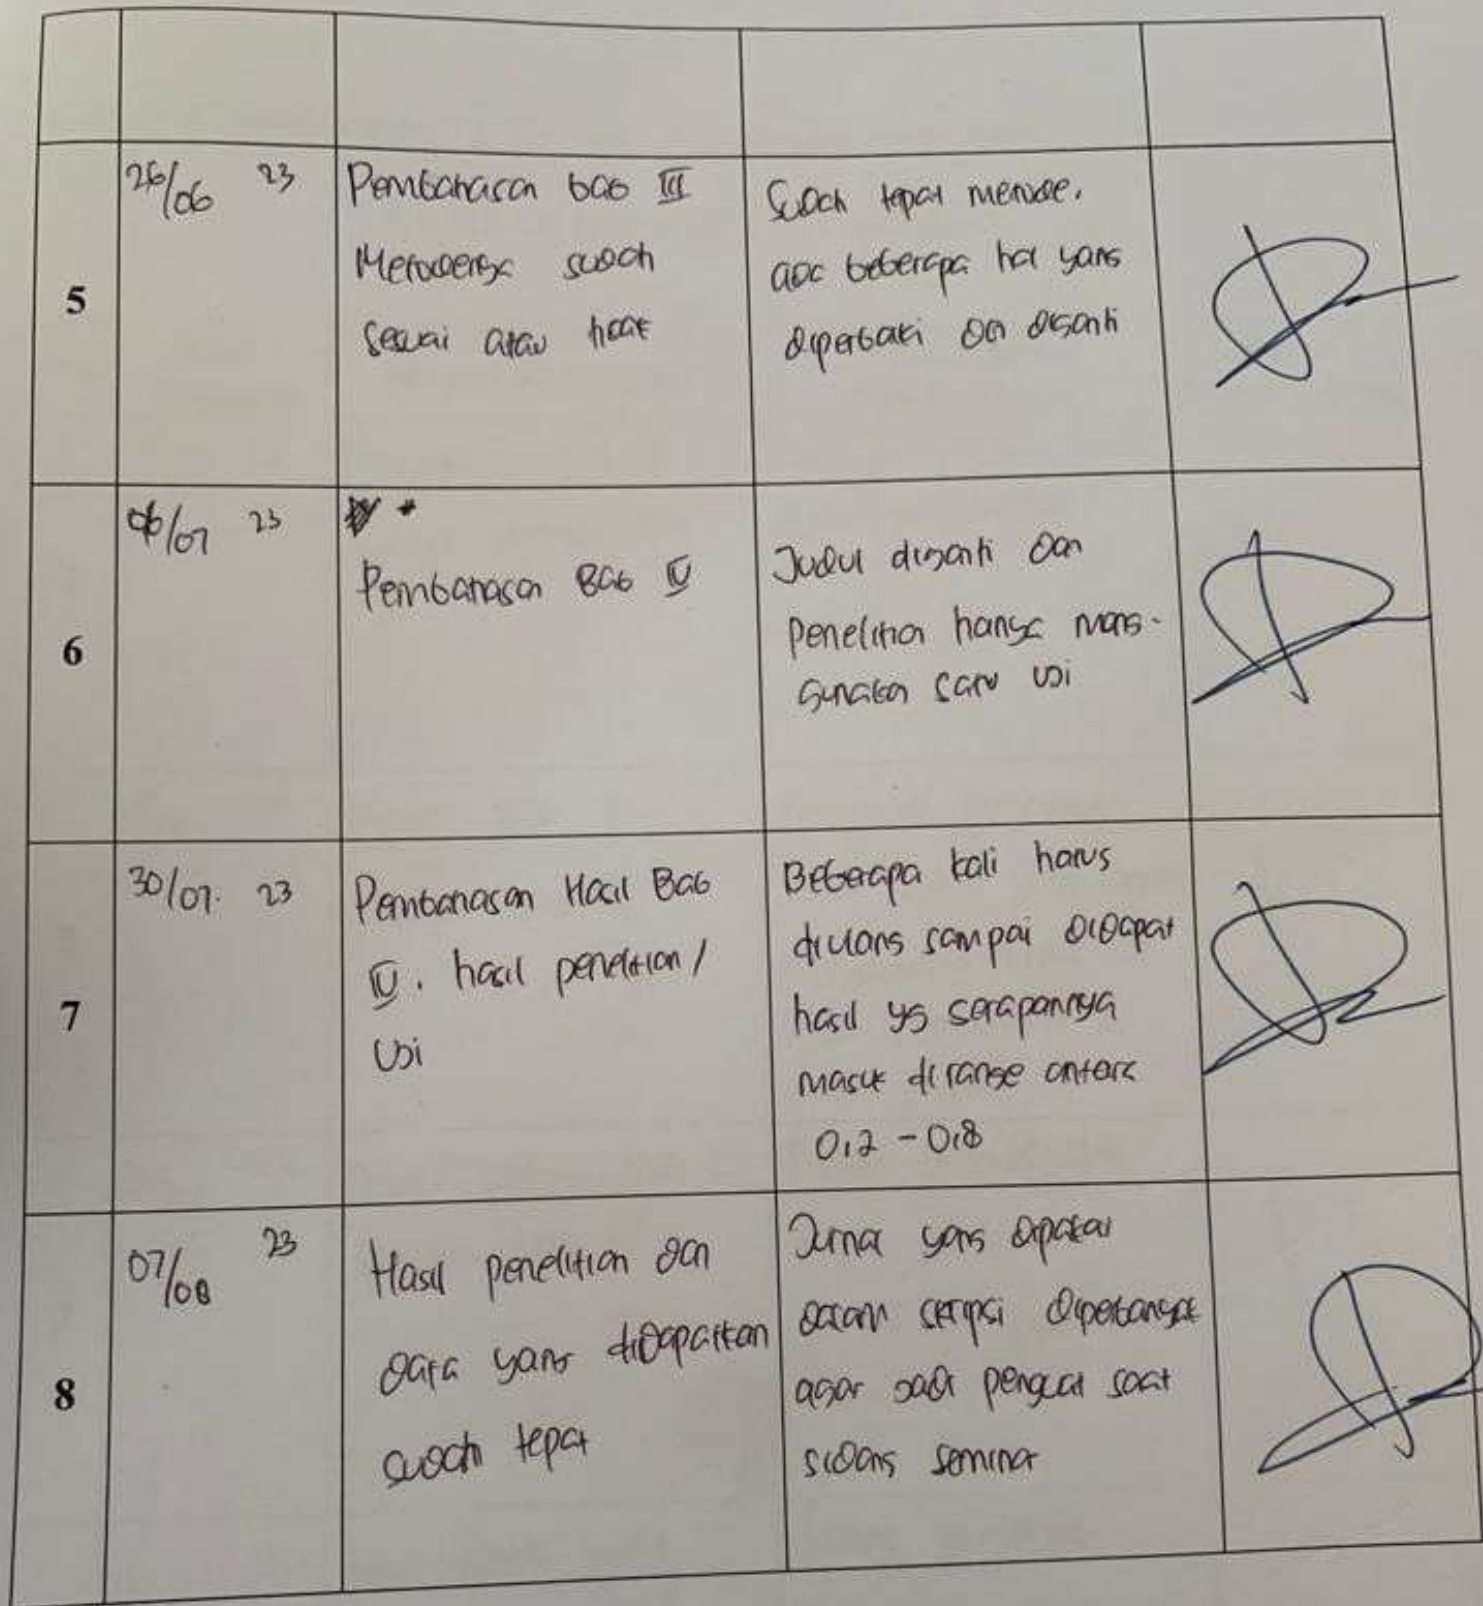 5
26/06 23
Pembahasan bab III
Metodenya sudah
sesuai atau tidak
Sudah tepat metode.
ada beberapa hal yang
diperbaiki dan diganti
6
06/07 23
Pembahasan Bab IV
Judul diganti dan
penelitian hanya meng-
gunakan satu uji
7
30/07. 23
Pembahasan Hasil Bab
IV. hasil penelitian /
Uji
Beberapa kali harus
diulang sampai didapat
hasil yg serapannya
masuk di range antara
0,2 - 0,8
8
07/08 23
Hasil penelitian dan
data yang didapatkan
sudah tepat
Jurnal yang dipakai
dalam skripsi diperbanyak
agar jadi penguat saat
sidang seminar